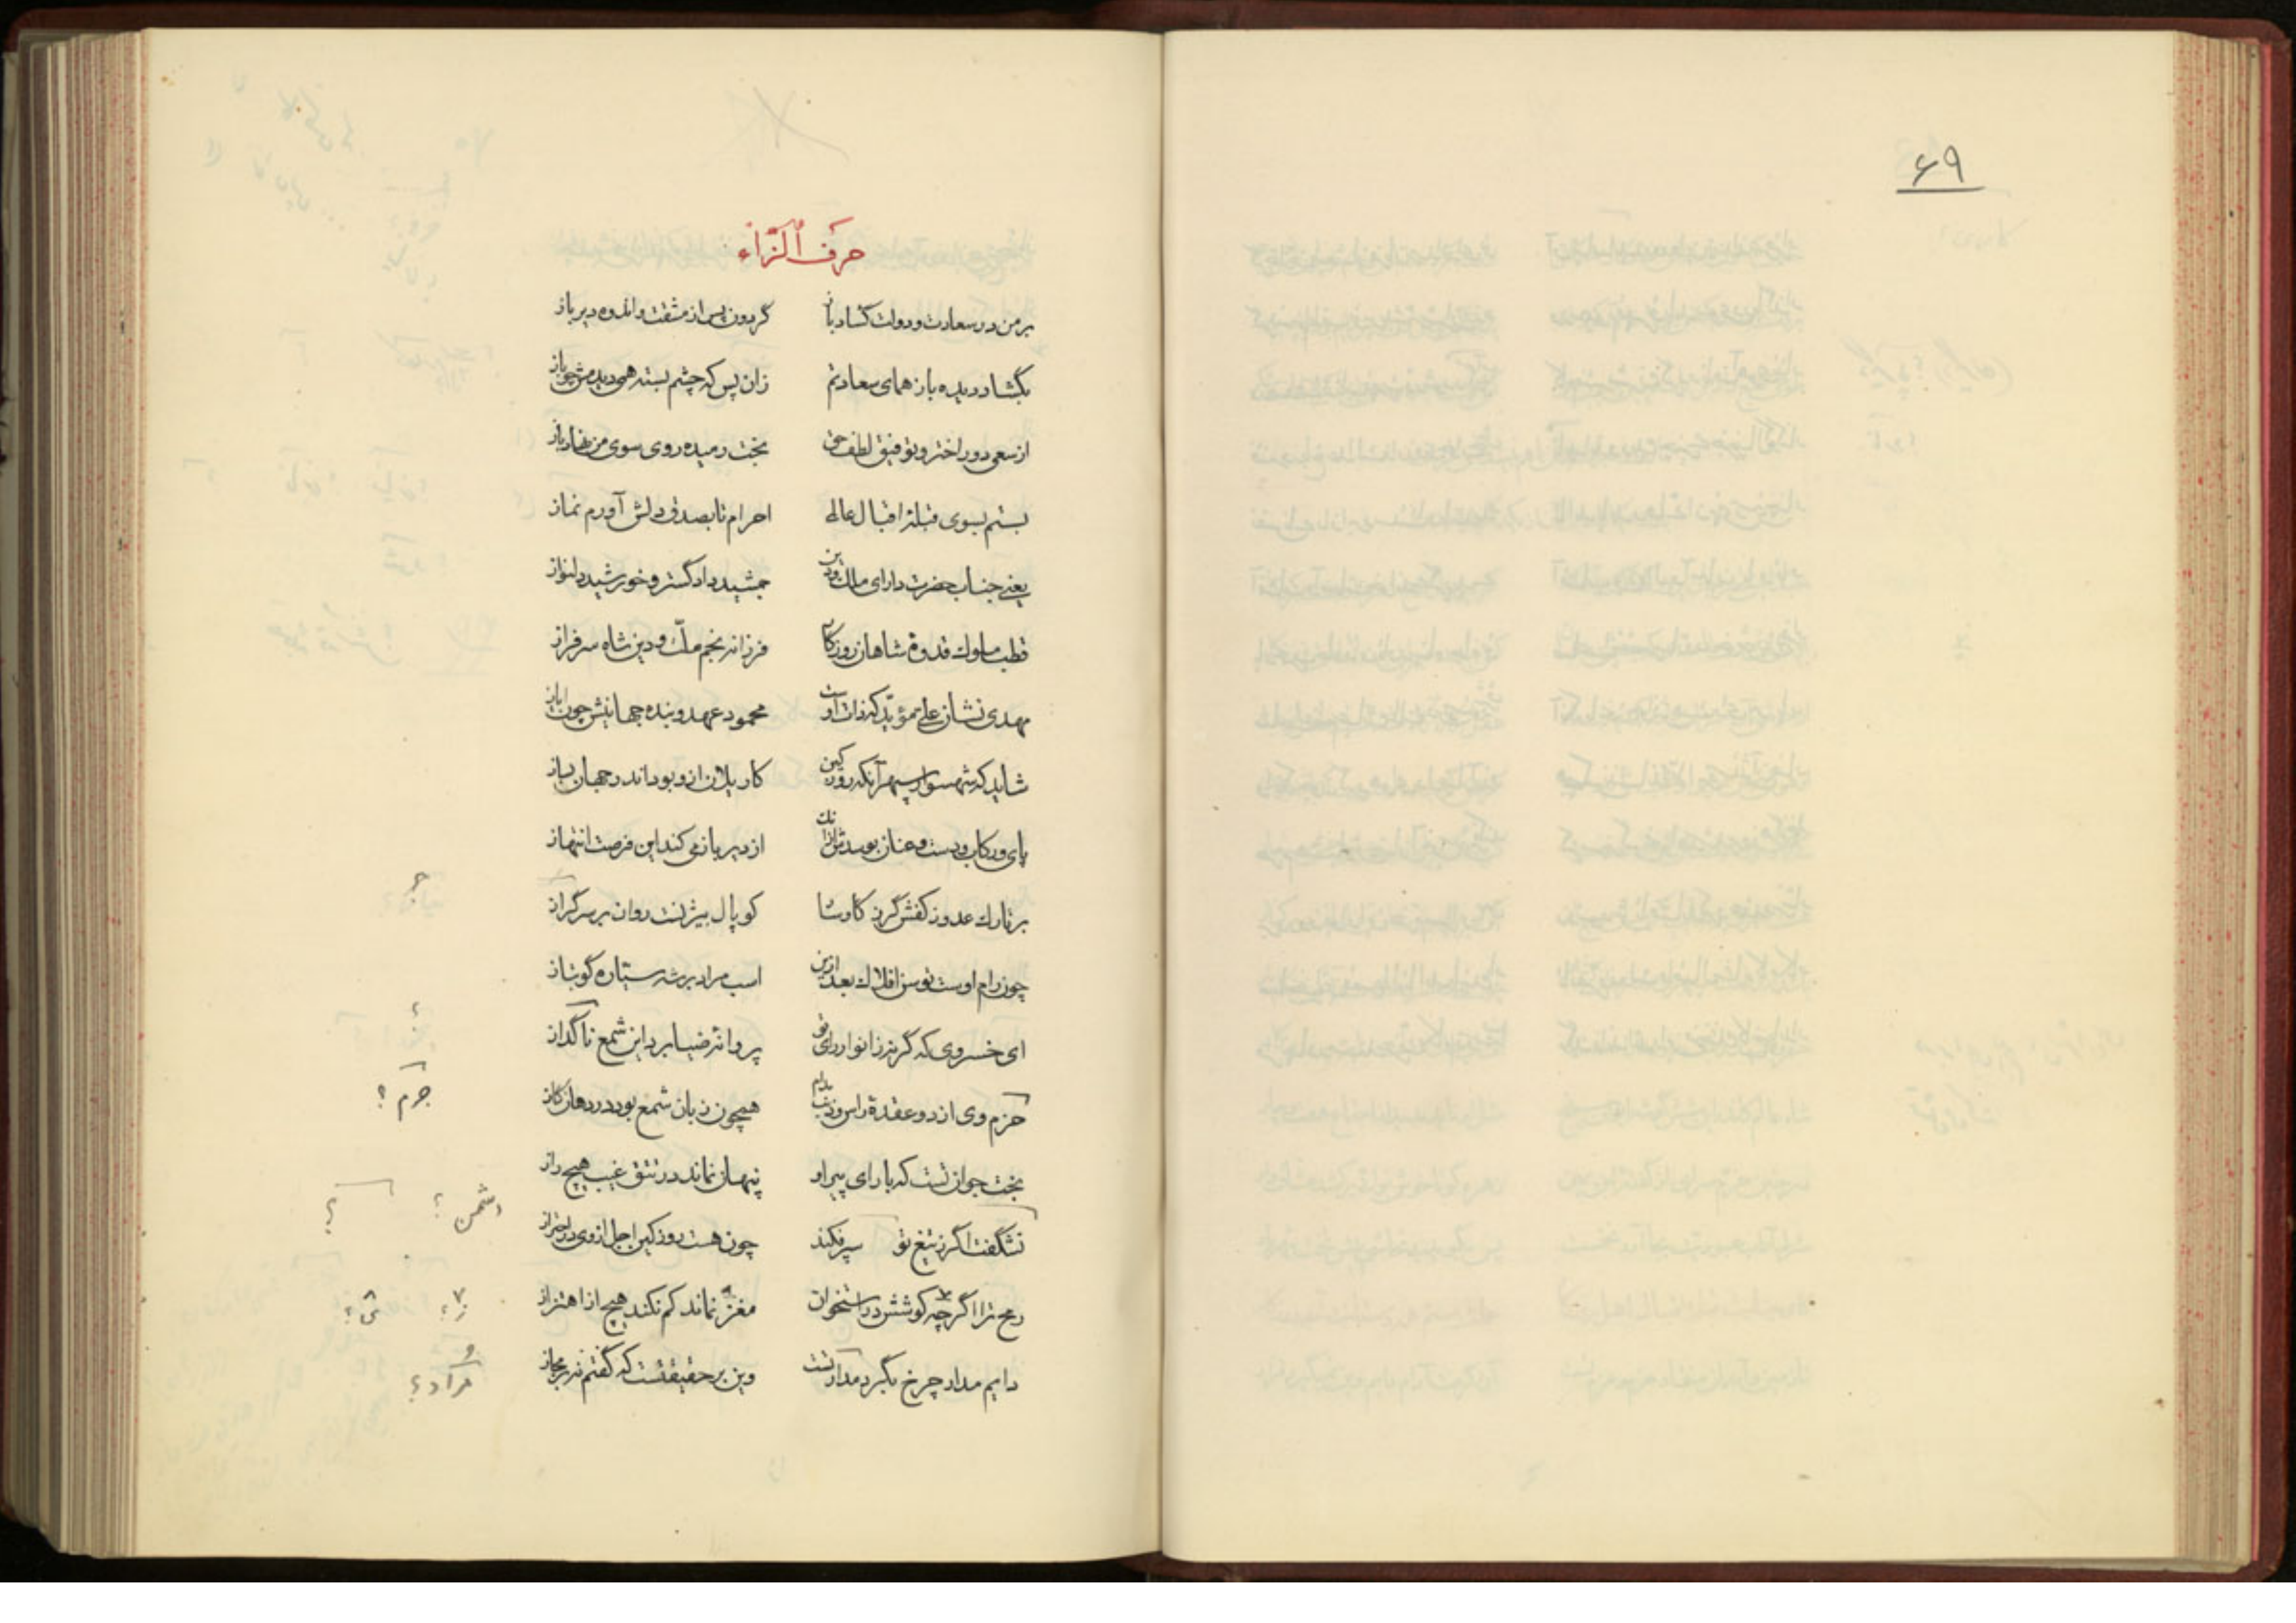 ۶۹
حرف الزاء
بر من در سعادت و دولت گشاد باز گردون پس از مشقت و اندوه دیرباز
بگشاد دیده باز همای سعادتم زان پس که چشم بسته همی دیدمش چو باز
از سعی دور اختر و توفیق لطف حق بخت رمیده روی سوی من نهاد باز
بستم بسوی قبلهٔ اقبال عالی احرام تا بصدق دلش آورم نماز
یعنی جناب حضرت دارای ملک و دین جمشید دادگستر و خورشید دلنواز
قطب ملوک قدوهٔ شاهان روزگار فرزانه نجم ملّت و دین شاه سرفراز
مهدی نشان علی مؤیّد که ذات اوست محمود عهد و بنده جهانیش چون ایاز
شاید که شهسوار سپهر آنکه روز کین کار یلان ازو بود اندر جهان بساز
پای و رکاب و دست و عنان بوسدش از آنک از دیر باز می کند این فرصت انتهاز
بر تارک عدو ز کفش گرز کاوسا کوپال بیژنست روان بر سر گراز
چون رام اوست توسن افلاک بعد ازین اسب مراد بر شه سیتاره گو بتاز
ای خسروی که گر نبرد ز انوار رای تو پروانه ضیا برد این شمع ناگداز
حزم وی از دو عقدهٔ راس و ذنب مدام همچون زبان شمع بود در دهان گاز
جرم ؟
بخت جوان تست که با رای پیر او پنهان نماند در تتق غیب هیچ راز
نشگفت اگر ز تیغ تو سپر فکند چون هست روز کین اجل از وی در احتراز
دشمن ؟
رمح ترا اگر چه کوشش در استخوان مغز نماند کم نکند هیچ از اهتزاز
دایم مدار چرخ بگرد مدار تست وین بر حقیقتست که گفتم نه بر مجاز
مراد ؟